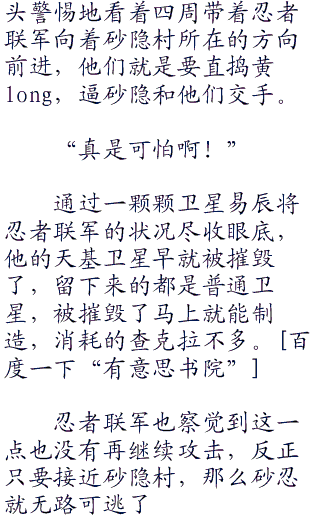 头警惕地看着四周带着忍者
联军向着砂隐村所在的方向
前进，他们就是要直捣黄
long，逼砂隐和他们交手。
“真是可怕啊！”
通过一颗颗卫星易辰将
忍者联军的状况尽收眼底，
他的天基卫星早就被摧毁
了，留下来的都是普通卫
星，被摧毁了马上就能制
造，消耗的查克拉不多。[百
度一下“有意思书院”]
忍者联军也察觉到这一
点也没有再继续攻击，反正
只要接近砂隐村，那么砂忍
就无路可逃了